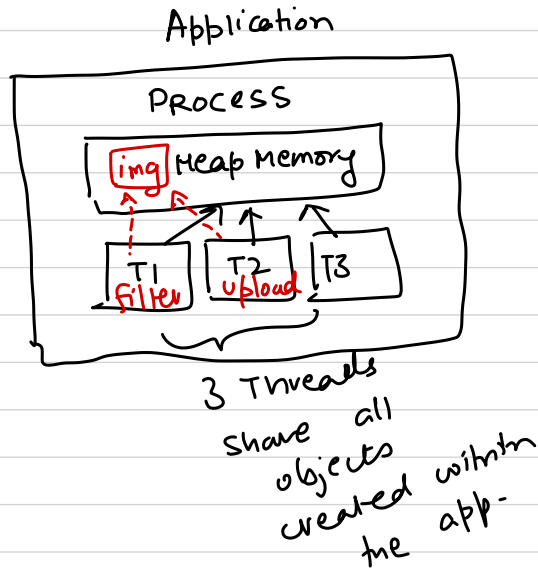 Application
PROCESS
img Heap Memory
T1 T2 T3
filter upload
3 Threads
share all
objects
created within
the app.